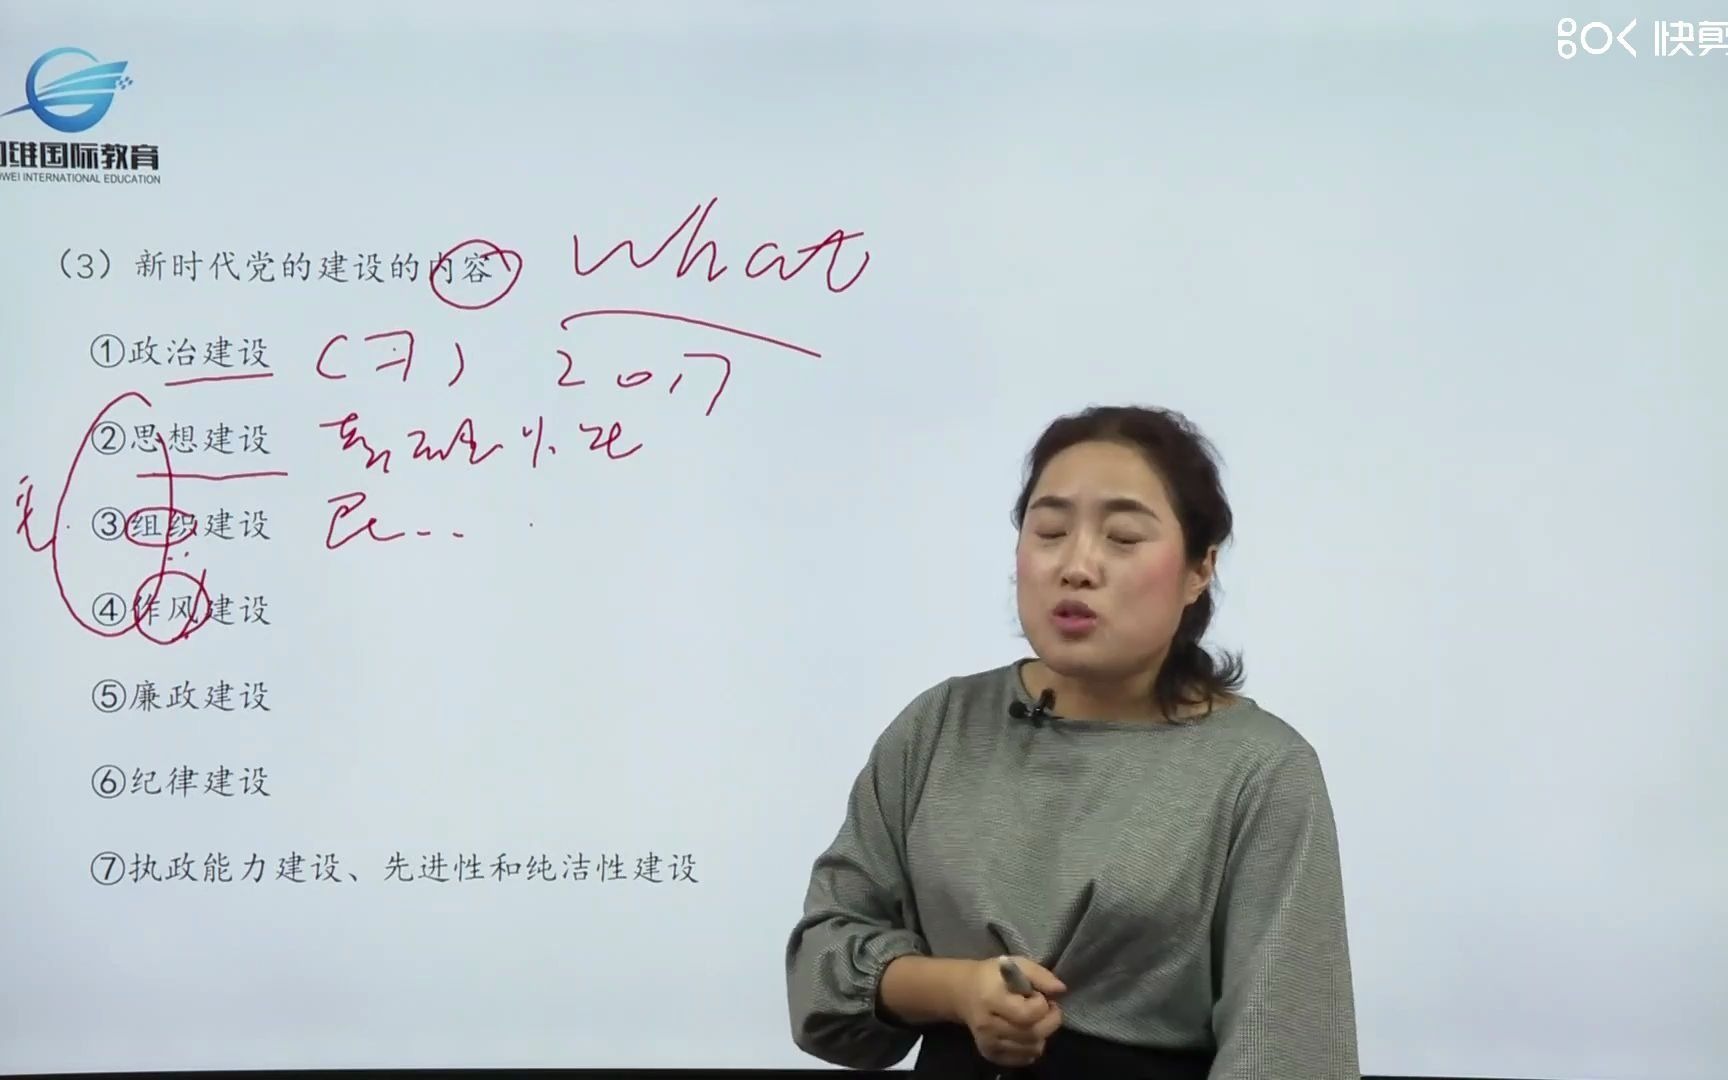 快剪
维国际教育
WEI INTERNATIONAL EDUCATION
（3）新时代党的建设的内容 what
①政治建设 （习） 2017
②思想建设
③组织建设
④作风建设
⑤廉政建设
⑥纪律建设
⑦执政能力建设、先进性和纯洁性建设